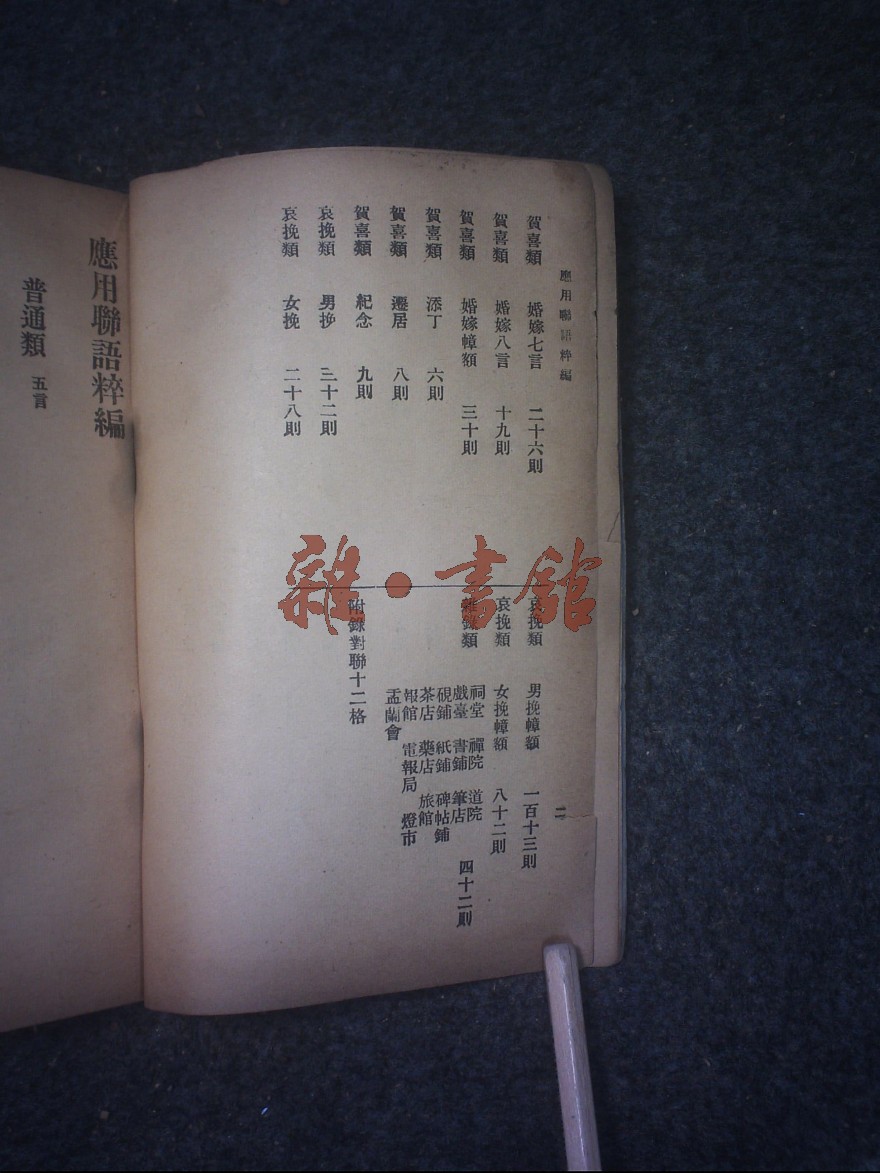 應用聯語粹編
賀喜類 婚嫁七言 二十六則
賀喜類 婚嫁八言 十九則
賀喜類 婚嫁幛額 三十則
賀喜類 添丁 六則
賀喜類 遷居 八則
賀喜類 紀念 九則
哀挽類 男挽 三十二則
哀挽類 女挽 二十八則
哀挽類 男挽幛額 一百十三則
哀挽類 女挽幛額 八十二則
雜錄類
祠堂 禪院 道院
戲臺 書鋪 筆店
硯鋪 紙鋪 碑帖鋪
茶店 藥店 旅館
報館 電報局 燈市
盂蘭會
四十二則
附錄對聯十二格
二
應用聯語粹編
普通類 五言
雜·書館